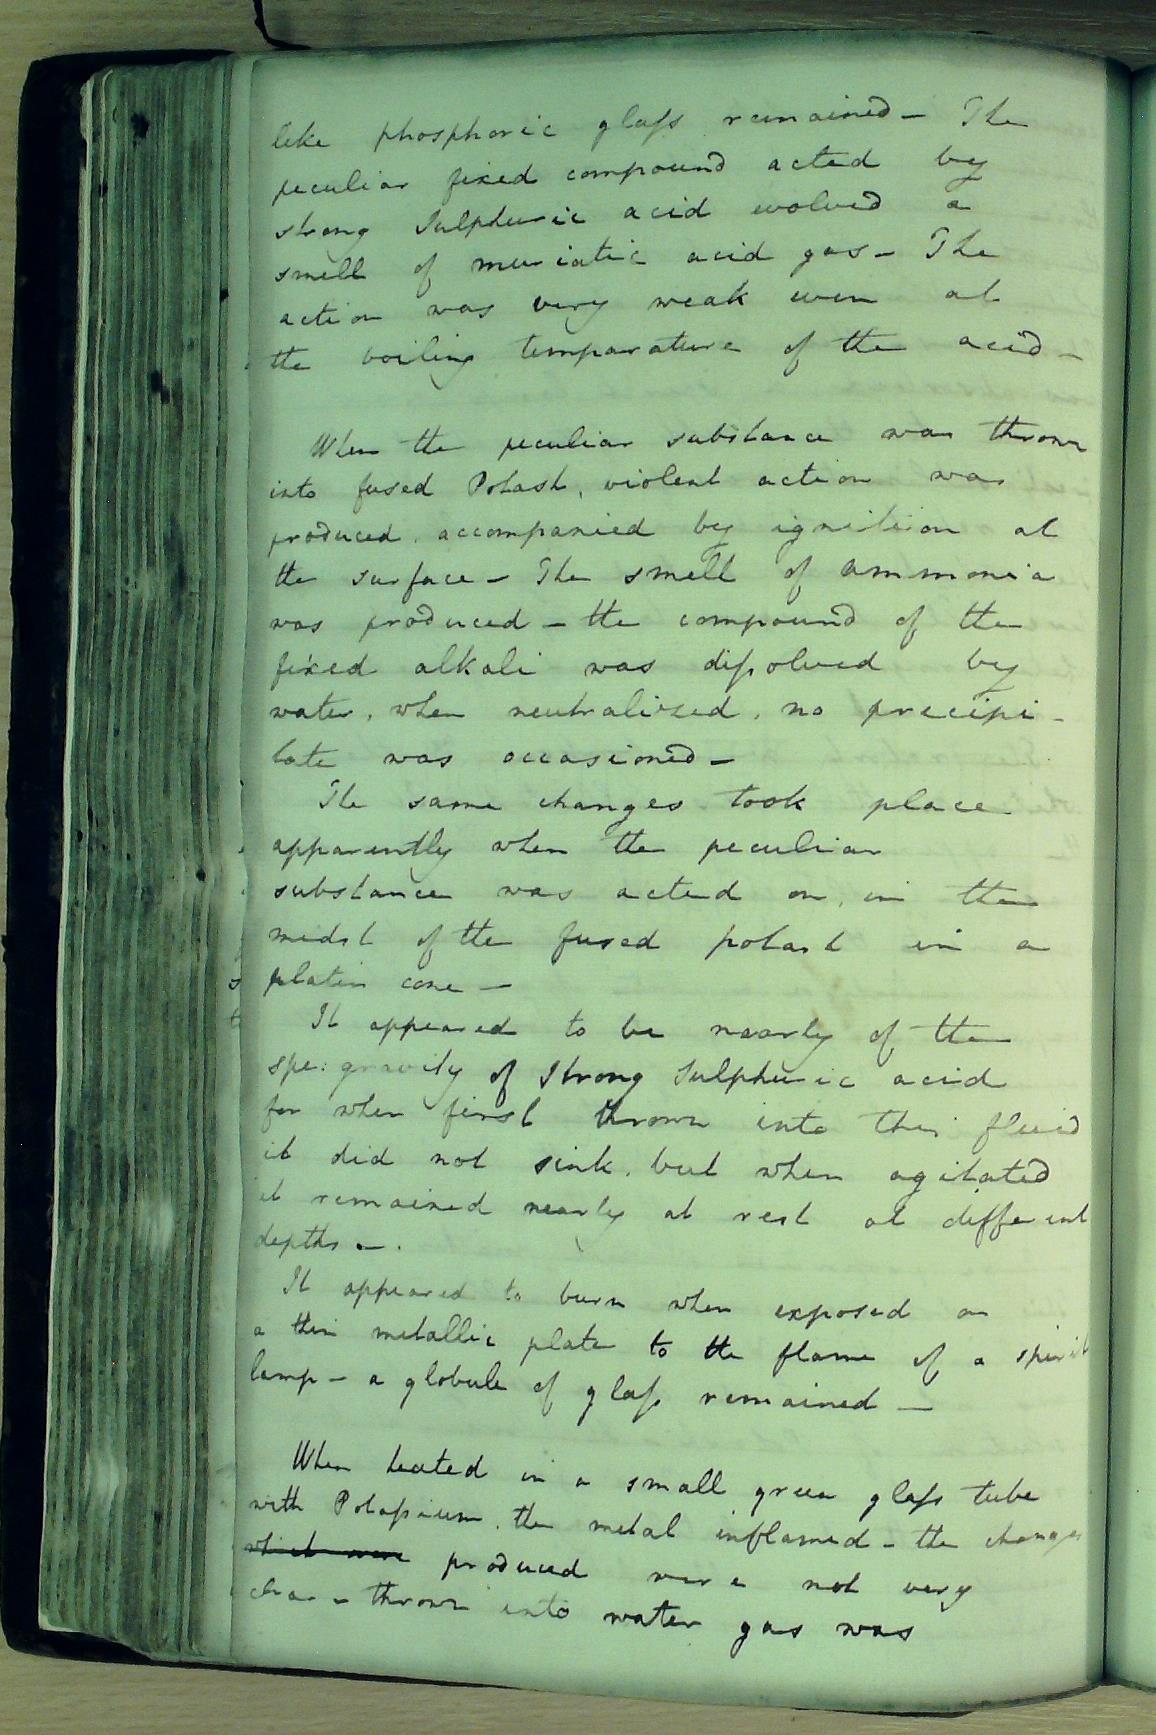 like phosphoric glaſs remained – The
peculiar fixed compound acted by
strong Sulphuric acid evolved a
smell of muriatic acid gas – The
action was very weak even at
the boiling temparature of the acid –
When the peculiar substance was thrown
into fused Potash, violent action was
produced, accompanied by ignition at
the surface – The smell of ammonia
was produced – the compound of the
fixed alkali was diſsolved by
water, when neutralized, no precipi-
tate was occasioned –
The same changes took place
apparently when the peculiar
substance was acted on, in the
midst of the fused potash in a
platin cone –
It appeared to be nearly of the
spe: gravity of strong Sulphuric acid
for when first thrown into this fluid
it did not sink, but when agitated
it remained nearly at rest at different
depths –.
It appeared to burn when exposed on
a thin metallic plate to the flame of a spirit
lamp – a globule of glaſs remained –
When heated in a small green glaſs tube
with Potaſsium, the metal inflamed – the changes
which were produced were not very
clear – thrown into water gas was